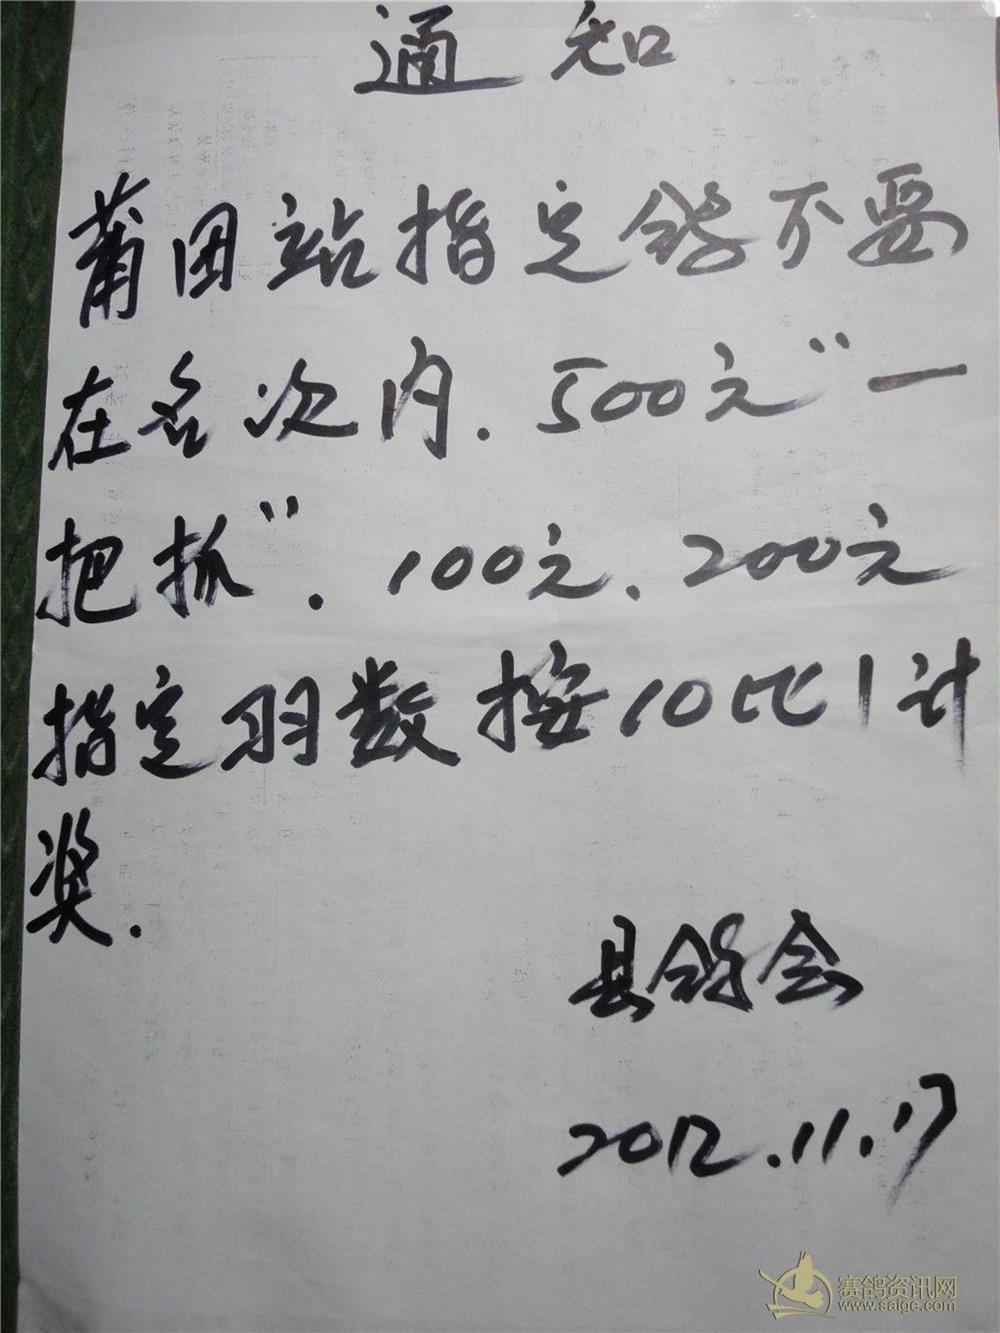 通知
莆田站指定鸽不要
在名次内.500元"一
把抓".100元.200元
指定羽数按10比1计
奖.
县鸽会
2012.11.17
赛鸽资讯网
www.saige.com